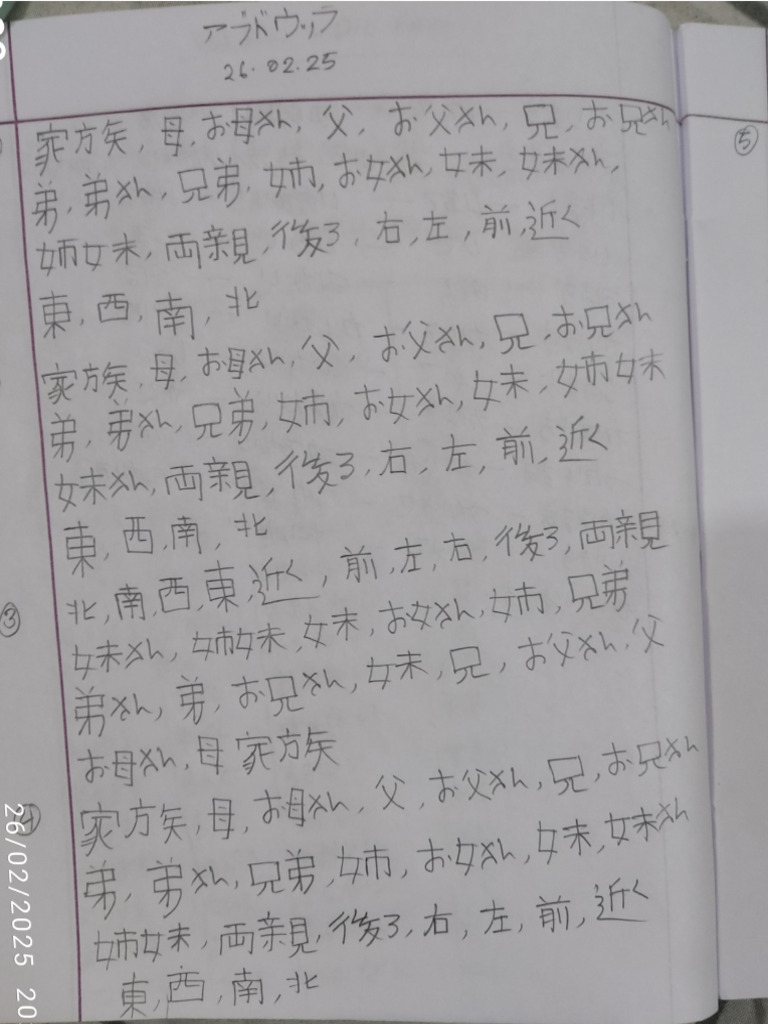 アブドウッラ
26.02.25
⑤
家方矢, 母, お母さん, 父, お父さん, 兄, お兄さん
弟, 弟さん, 兄弟, 姉, お女さん, 妹, 妹さん,
姉妹, 両親, 後ろ, 右, 左, 前, 近く
東, 西, 南, 北
家族, 母, お母さん, 父, お父さん, 兄, お兄さん
弟, 弟さん, 兄弟, 姉, お女さん, 妹, 姉妹
妹さん, 両親, 後ろ, 右, 左, 前, 近く
東, 西, 南, 北
北, 南, 西, 東, 近く, 前, 左, 右, 後ろ, 両親
③
妹さん, 姉妹, 妹, お女さん, 姉, 兄弟
弟さん, 弟, お兄さん, 妹, 兄, お父さん, 父
お母さん, 母 家族
④
家族, 母, お母さん, 父, お父さん, 兄, お兄さん
弟, 弟さん, 兄弟, 姉, お女さん, 妹, 妹さん
姉妹, 両親, 後ろ, 右, 左, 前, 近く
東, 西, 南, 北
26/02/2025 20